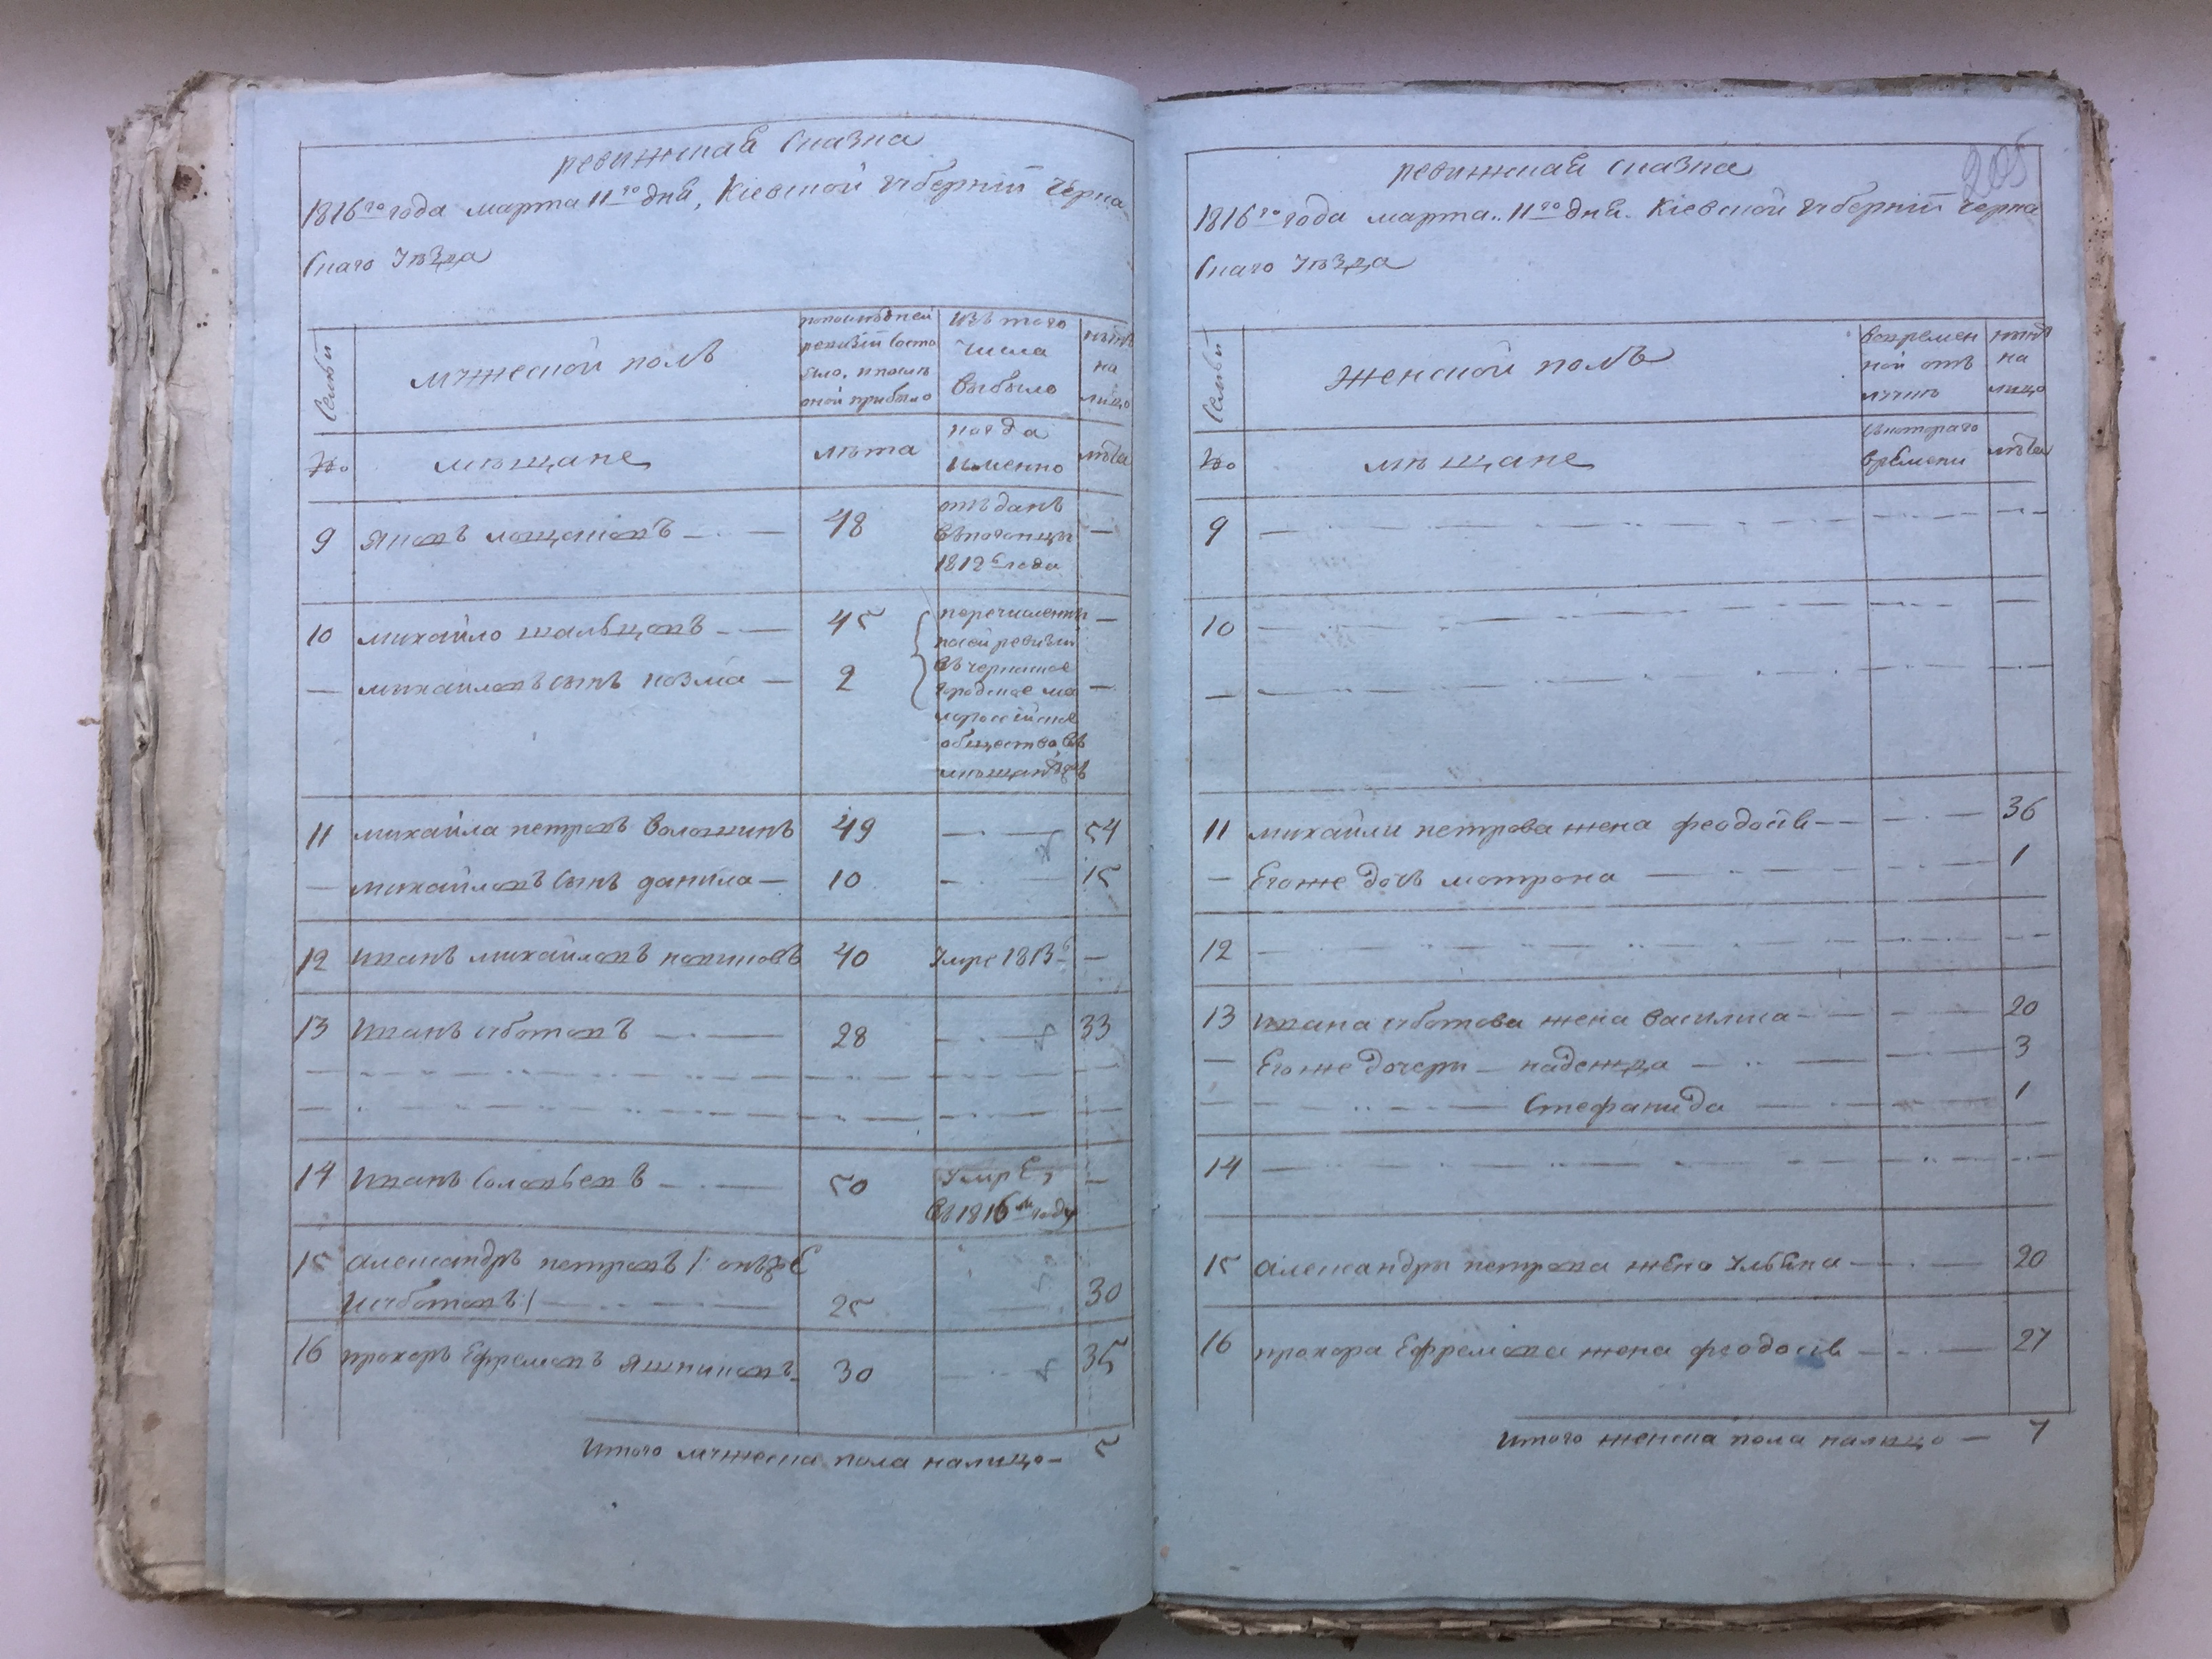 ревижская сказка
1816го года марта 11го дня, Кіевской губерніи Черка
скаго уѣзда
Семьи
мужеской полъ
попослѣдней
ревизіи состо
яло, и послѣ
оной прибыло
изъ того
числа
выбыло
нынѣ
на
лицо
№
мѣщане
лѣта
когда
именно
лѣта
9 Яковъ 48 —
отъданъ
1812г года
10 Михайло шальцовъ 45 —
— Михайловъ сынъ козма — 2 —
перечисленны
посей ревизіи
въ черкаское
городское ма
лоросейское
общество, въ
11 Михайла петровъ волошинъ 49 — 54
— Михайловъ сынъ данила — 10 — 15
12 Иванъ Михайловъ 40 умре 1813г —
13 Иванъ суботовъ 28 — 33
14 Иванъ Соловьевъ 50 умре, —
въ 1816м году
15 Александръ петровъ /: онъже
И суботовъ:/ 25 — 30
16 прохоръ Ефремовъ 30 — 35
Итого мужеска пола налицо — 5
205
ревижская сказка
1816го года марта 11го дня. Кіевской губерніи черка
скаго уѣзда
Семьи
женской полъ
вовремен
ной отъ
лучкѣ
нынѣ
на
лицо
№
мѣщане
скотораго
времени
лѣта
9 —
10 —
— —
11 Михайли петрова жена феодосія — 36
— Егоже дочь мотрона — 1
12 —
13 Ивана суботова жена василиса — 20
— Егоже дочери — надежда — 3
— Стефанида — 1
14 —
15 Александры петрова жена ульяна — 20
16 прохора Ефремова жена феодосія — 27
Итого женска пола налицо — 7